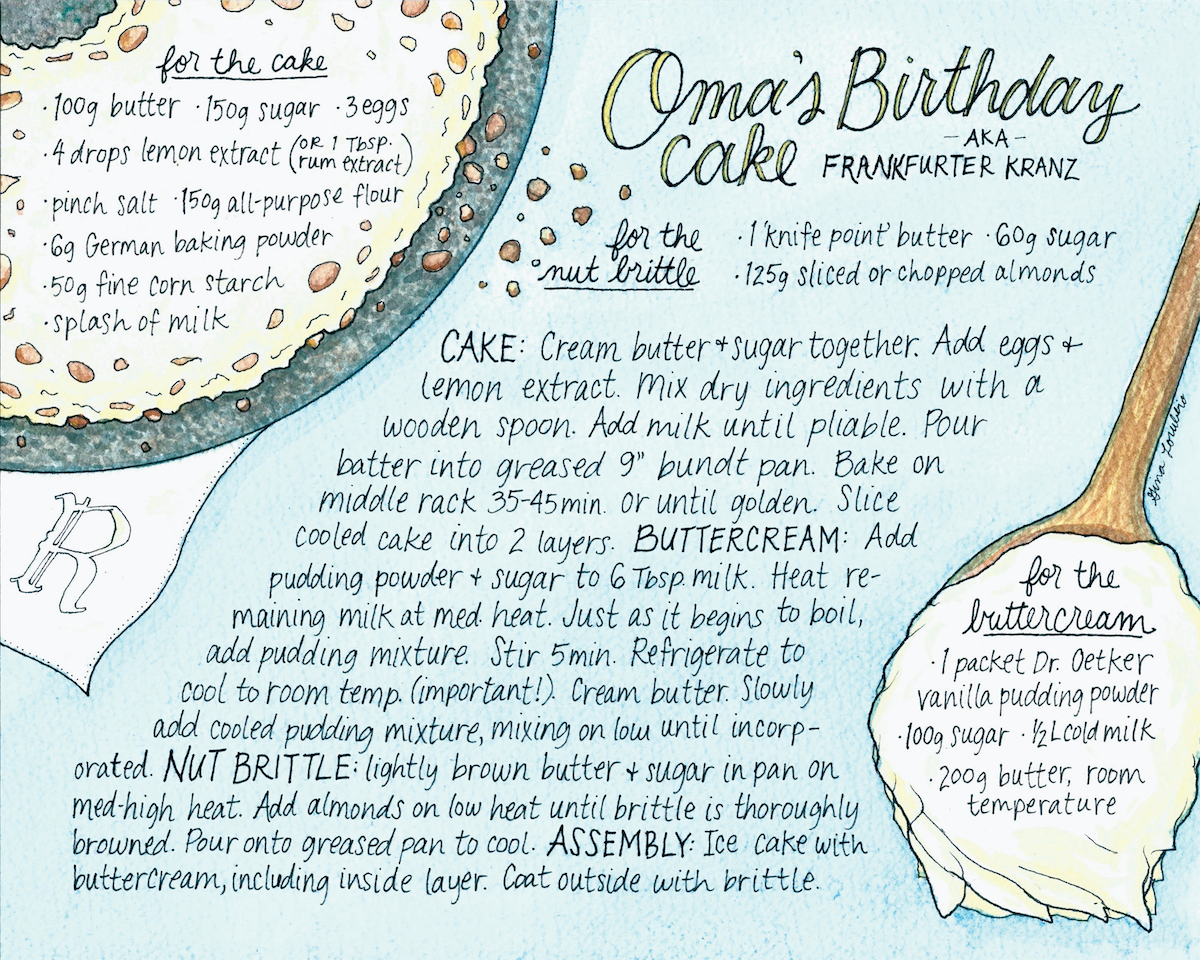 Oma's Birthday
cake
-AKA-
FRANKFURTER KRANZ
for the cake
·100g butter ·150g sugar ·3 eggs
·4 drops lemon extract (OR 1 Tbsp. rum extract)
·pinch salt ·150g all-purpose flour
·6g German baking powder
·50g fine corn starch
·splash of milk
for the
nut brittle
·1 'knife point' butter ·60g sugar
·125g sliced or chopped almonds
CAKE: Cream butter + sugar together. Add eggs +
lemon extract. Mix dry ingredients with a
wooden spoon. Add milk until pliable. Pour
batter into greased 9" bundt pan. Bake on
middle rack 35-45 min. or until golden. Slice
cooled cake into 2 layers. BUTTERCREAM: Add
pudding powder + sugar to 6 Tbsp. milk. Heat re-
maining milk at med. heat. Just as it begins to boil,
add pudding mixture. Stir 5 min. Refrigerate to
cool to room temp. (important!). Cream butter. Slowly
add cooled pudding mixture, mixing on low until incorp-
orated. NUT BRITTLE: lightly brown butter + sugar in pan on
med-high heat. Add almonds on low heat until brittle is thoroughly
browned. Pour onto greased pan to cool. ASSEMBLY: Ice cake with
buttercream, including inside layer. Coat outside with brittle.
for the
buttercream
·1 packet Dr. Oetker
vanilla pudding powder
·100g sugar ·½ L cold milk
·200g butter, room
temperature
R
Gina